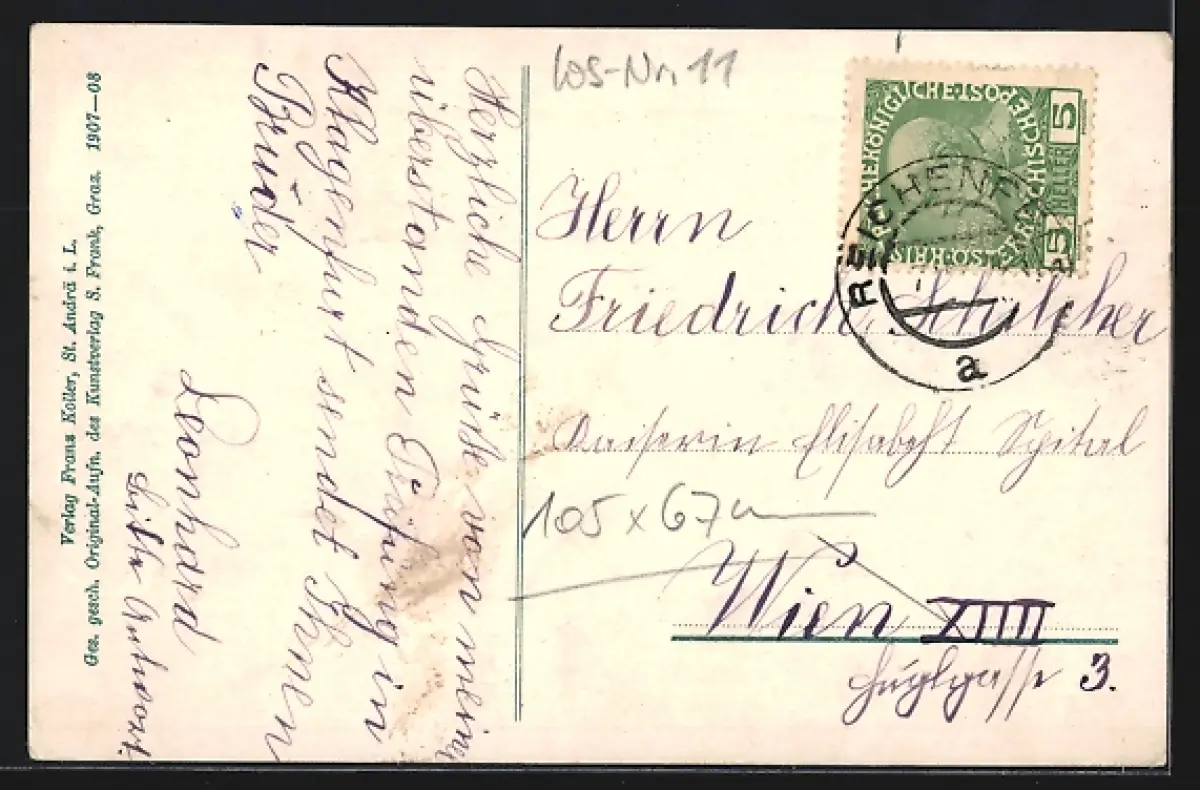 Los-Nr. 11
KAISERLICHE KÖNIGLICHE ÖSTERREICHISCHE POST
5 HELLER 5
REICHEN
a
Herrn
Friedrich
Kaiserin Elisabeht Spital
105 x 67
Wien XIIII
Huglgasse 3.
Herzliche Grüße von meiner
überstanden Prüfung in
Klagenfurt sendet Ihnen
Bruder
Leonhard
bitte Antwort.
Verlag Franz Koller, St. Andrä i. L.
Ges. gesch. Original-Aufn. des Kunstverlag S. Frank, Graz. 1907—08